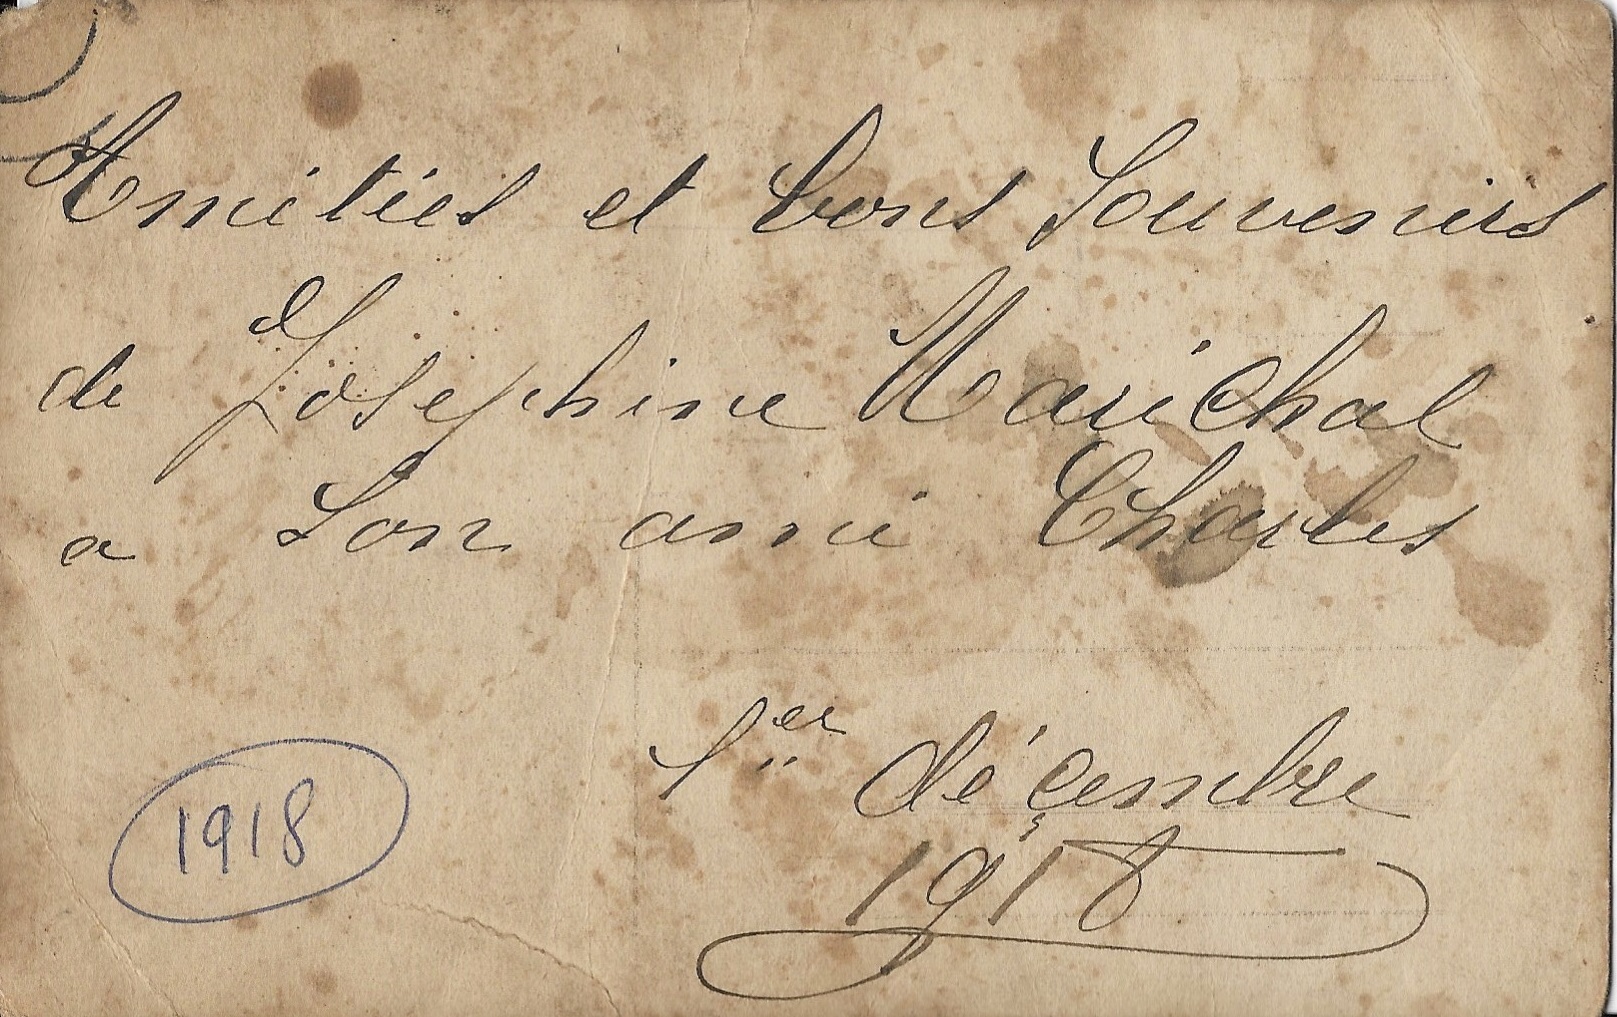 Amitiés et bons Souvenirs
de Joséphine Marichal
a Son ami Charles
1er déçembre
1918
1918